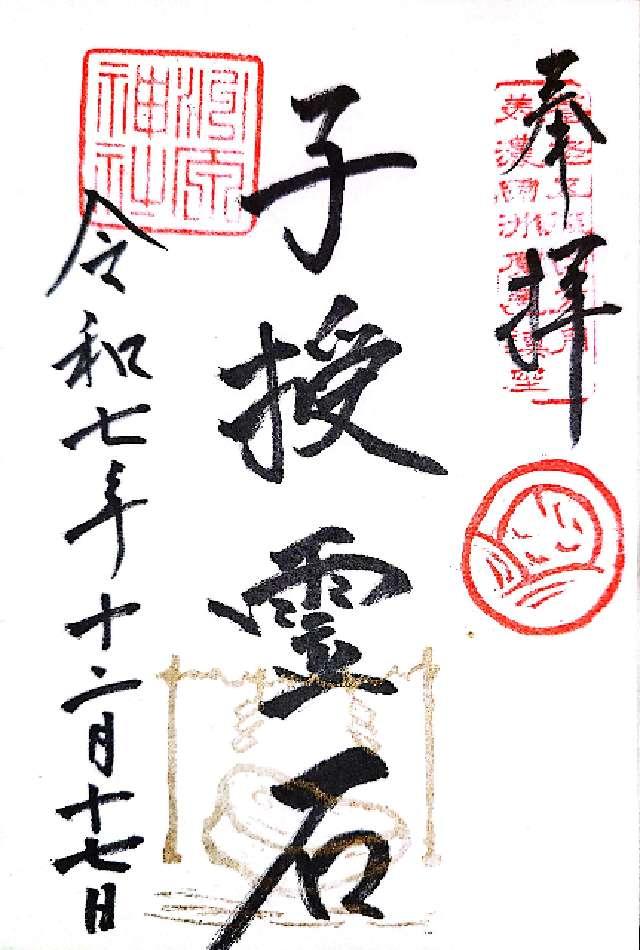 奉拝
子授霊石
洲原神社
令和七年十二月十七日